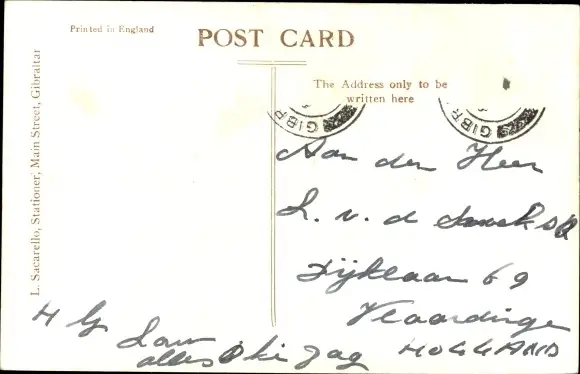 Printed in England
POST CARD
The Address only to be
written here
L. Sacarello, Stationer, Main Street, Gibraltar
GIBR
GIBR
Aan den Heer
L. v. d
Dijklaan 69
Vlaardingen
HOLLAND
H G
alles